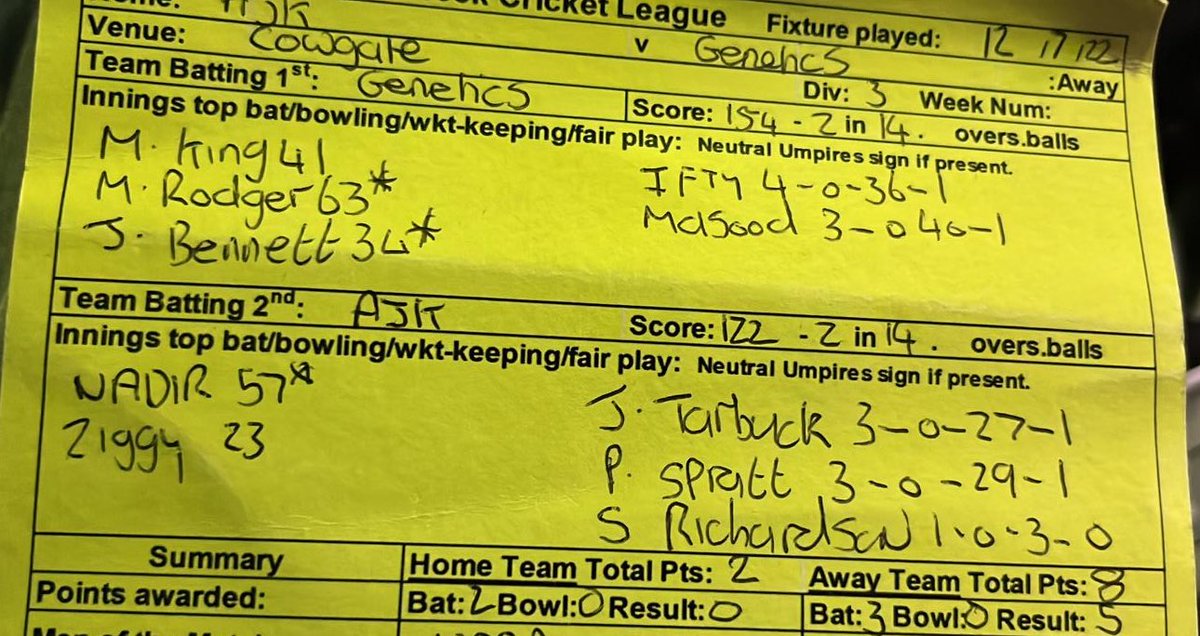 Cricket League Fixture played: 12 17 122
Home: AJK v Genetics :Away
Venue: Cowgate Div: 3 Week Num:
Team Batting 1st: Genetics Score: 154 - 2 in 14. overs.balls
Innings top bat/bowling/wkt-keeping/fair play: Neutral Umpires sign if present.
M. King 41
M. Rodger 63*
J. Bennett 34*
IFTY 4-0-36-1
Masood 3-0 40-1
Team Batting 2nd: AJK Score: 122 - 2 in 14. overs.balls
Innings top bat/bowling/wkt-keeping/fair play: Neutral Umpires sign if present.
NADIR 57*
Ziggy 23
J. Tarbuck 3-0-27-1
P. Spratt 3-0-29-1
S Richardson 1-0-3-0
Summary Home Team Total Pts: 2 Away Team Total Pts: 8
Points awarded: Bat: 2 Bowl: 0 Result: 0 Bat: 3 Bowl: 0 Result: 5